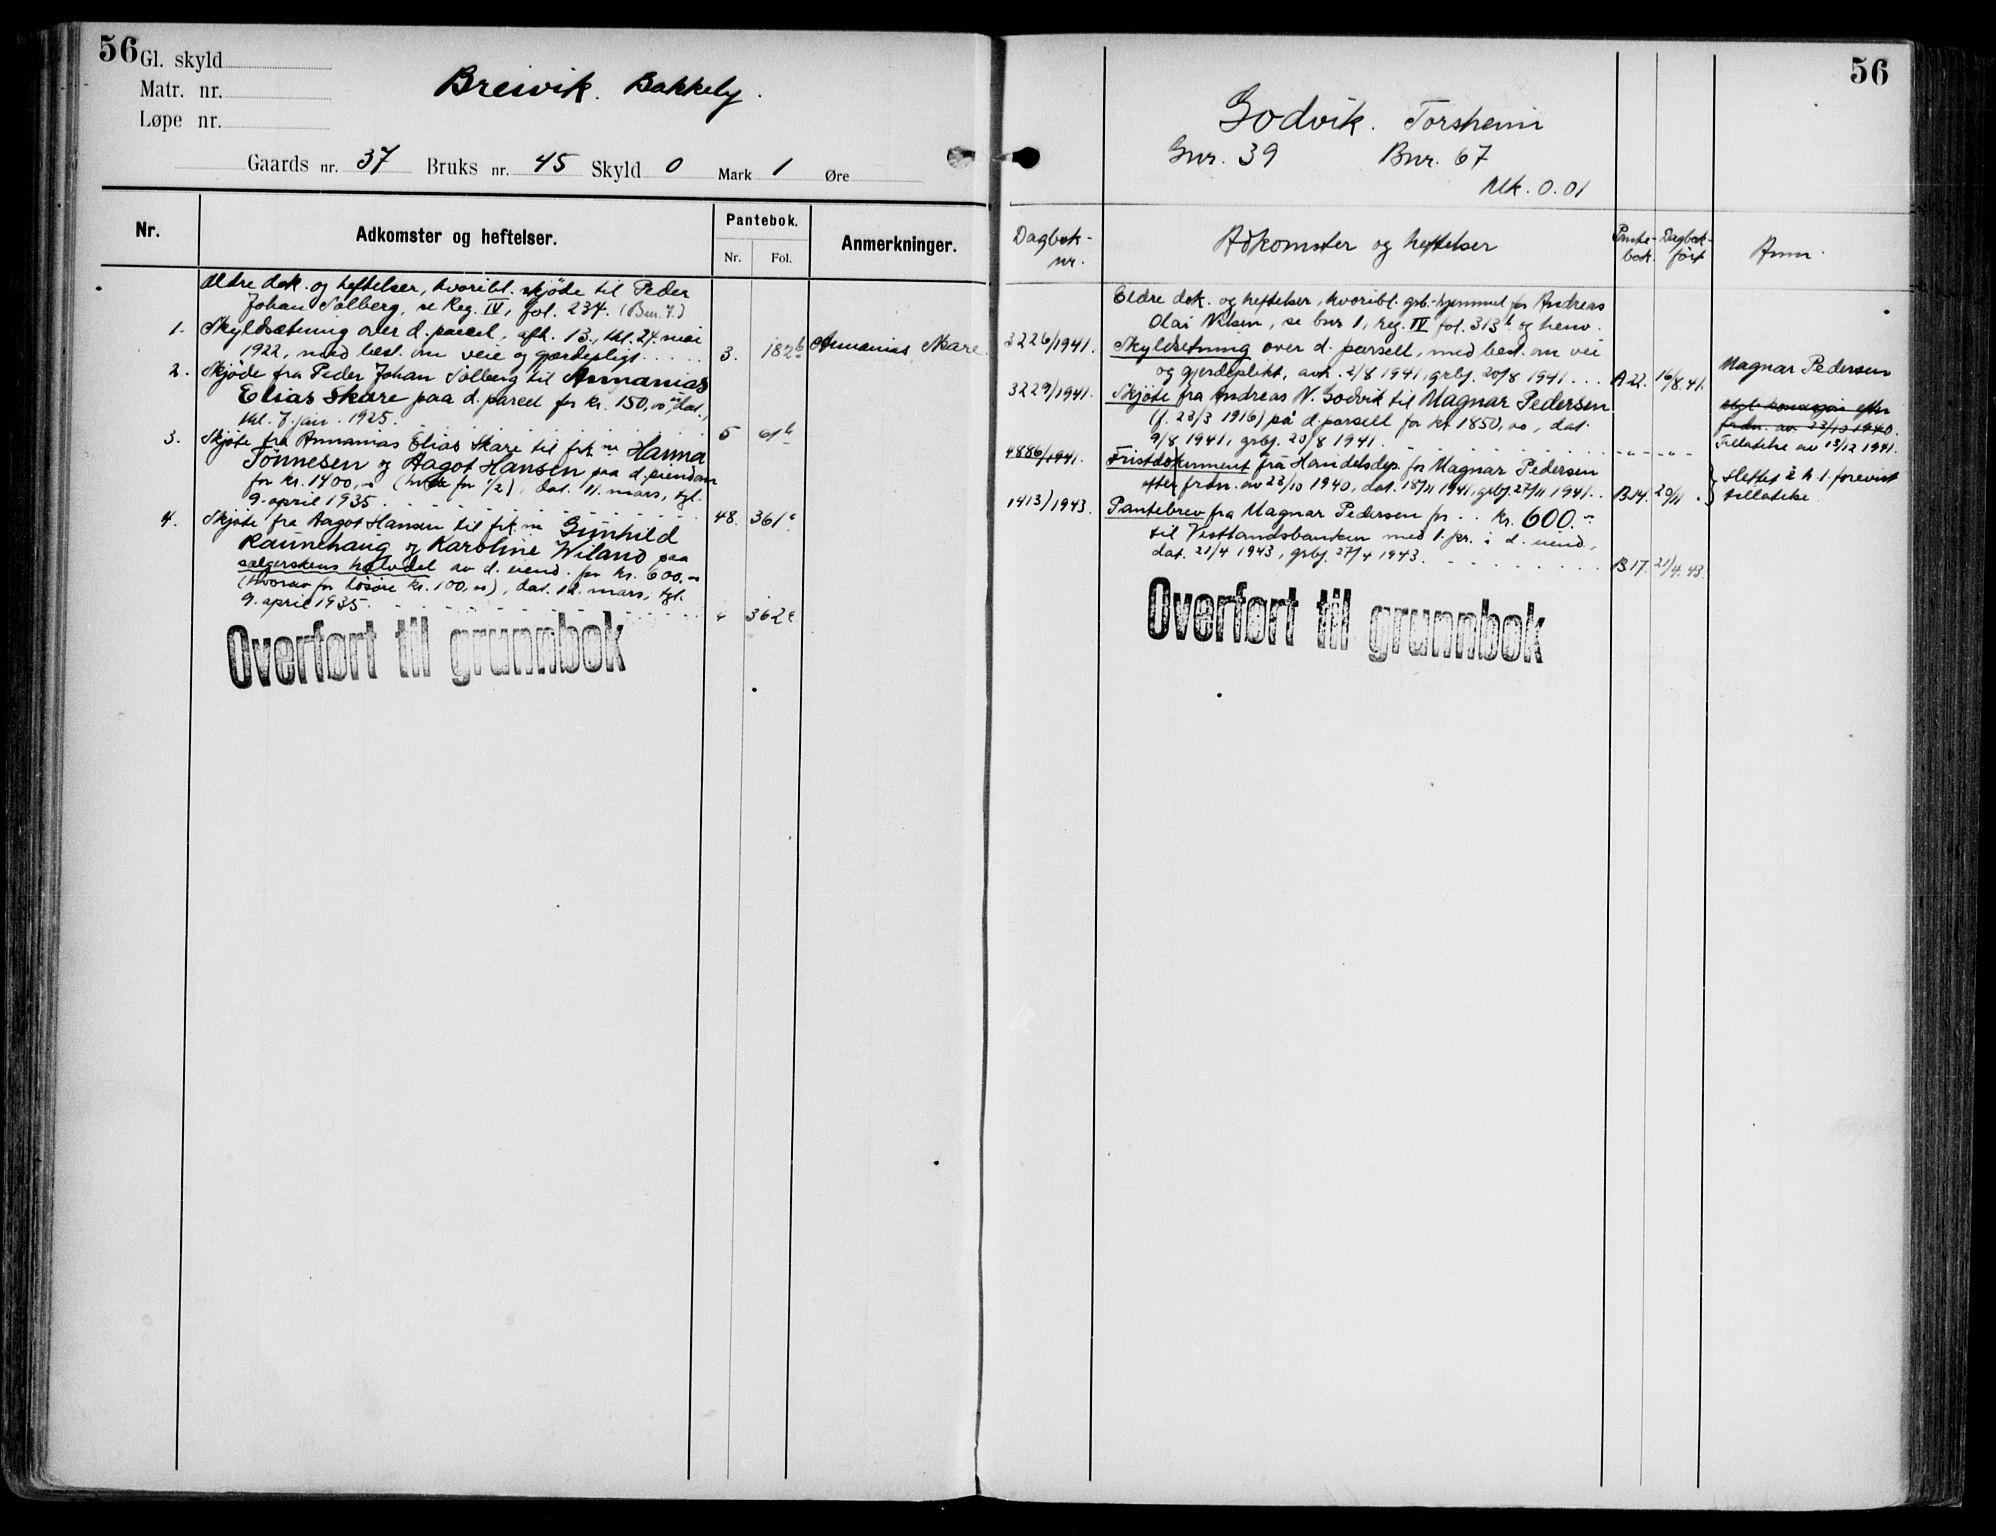 56
Gl. skyld
Matr. nr.
Løpe nr.
Breivik. Bakkely.
Gaards nr. 37 Bruks nr. 45 Skyld 0 Mark 1 Øre
Nr.
Adkomster og heftelser.
Pantebok.
Nr. Fol.
Anmerkninger.
Ældre dok. og heftelser, hvoribl. skjøde til Peder
Johan Solberg, se Reg. IV, fol. 234. (Bnr. 7.)
1. Skyldsætning over d. parcel, afh. 13., thl. 27. mai
1922, med best. om veie og gjærdepligt 3. 182b Annanias Skare.
2. Skjøde fra Peder Johan Solberg til Annanias
Elias Skare paa d. parcel for kr. 150,00, dat.,
thl. 7. jan. 1925. 5 61b
3. Skjøte fra Annanias Elias Skare til frk.ne Hanna
Tönnesen og Aagot Hansen paa d. eiendom
for kr. 1400,00 (hver for 1/2), dat. 11. mars, tgl.
9. april 1935. 48. 361a
4. Skjøte fra Aagot Hansen til frk.ne Gunhild
Raunehaug og Karoline Wiland paa
sælgerskens halvdel av d. eiend. for kr. 600,00
(Hvorav for løsøre kr. 100,00), dat. 12. mars, tgl.
9. april 1935. " 362a
Overført til grunnbok
56
Godvik. Torsheim
Gnr. 39 Bnr. 67
Mk. 0.01
Dagbok-
nr.
Adkomster og heftelser
Pante-
bok.
Dagbok-
ført
Anm.
Eldre dok. og heftelser, hvoribl. grb.-hjemmel for Andreas
Olai Nilsen, se bnr 1, reg. IV fol. 313b og henv.
3226/1941. Skyldsetning over d. parsell, med best. om vei
og gjerdeplikt, avh. 2/8 1941, grbf. 20/8 1941 A 22. 16/8.41. Magnar Pedersen
3229/1941. Skjøte fra Andreas N. Godvik til Magnar Pedersen
(f. 23/3 1916) på d. parsell for kr. 1850,00, dat.
9/8 1941, grbf. 20/8 1941. - " - - " -
konsesjon efter
frdn. av 23/10 1940.
Tillatelse av 13/12 1941.
4886/1941. Fristdokument fra Handelsdep. for Magnar Pedersen
efter frdn. av 23/10 1940, dat. 18/11 1941, grbf. 27/11 1941. B 14. 20/11 .
Slettet i h. t. forevist
tillatelse
1413/1943. Pantebrev fra Magnar Pedersen for kr. 600.00
til Vestlandsbanken med 1. pr. i d. eiend.,
dat. 21/4 1943, grbf. 27/4 1943. B 17. 21/4.43.
Overført til grunnbok